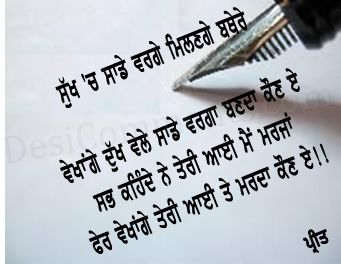 ਸੁੱਖ 'ਚ ਸਾਡੇ ਵਰਗੇ ਮਿਲਣਗੇ ਬਥੇਰੇ
ਵੇਖਾਂਗੇ ਦੁੱਖ ਵੇਲੇ ਸਾਡੇ ਵਰਗਾ ਬਣਦਾ ਕੌਣ ਏ
ਸਭ ਕਹਿੰਦੇ ਨੇ ਤੇਰੀ ਆਈ ਮੈਂ ਮਰਜਾਂ
ਫੇਰ ਵੇਖਾਂਗੇ ਤੇਰੀ ਆਈ ਤੇ ਮਰਦਾ ਕੌਣ ਏ!!
ਪ੍ਰੀਤ